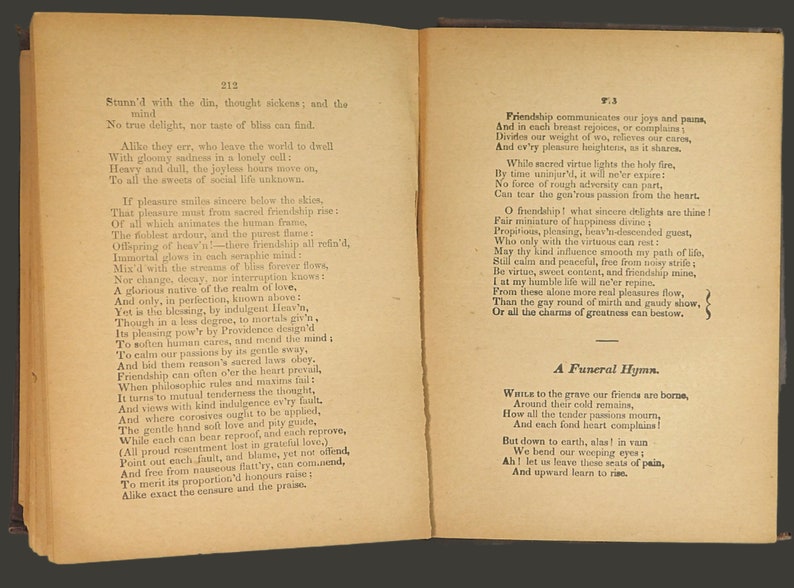 212
Stunn'd with the din, thought sickens; and the
mind
No true delight, nor taste of bliss can find.
Alike they err, who leave the world to dwell
With gloomy sadness in a lonely cell:
Heavy and dull, the joyless hours move on,
To all the sweets of social life unknown.
If pleasure smiles sincere below the skies,
That pleasure must from sacred friendship rise:
Of all which animates the human frame,
The noblest ardour, and the purest flame:
Offspring of heav'n!—there friendship all refin'd,
Immortal glows in each seraphic mind:
Mix'd with the streams of bliss forever flows,
Nor change, decay, nor interruption knows:
A glorious native of the realm of love,
And only, in perfection, known above:
Yet is the blessing, by indulgent Heav'n,
Though in a less degree, to mortals giv'n,
Its pleasing pow'r by Providence design'd
To soften human cares, and mend the mind;
To calm our passions by its gentle sway,
And bid them reason's sacred laws obey.
Friendship can often o'er the heart prevail,
When philosophic rules and maxims fail:
It turns to mutual tenderness the thought,
And views with kind indulgence ev'ry fault.
And where corosives ought to be applied,
The gentle hand soft love and pity guide,
While each can bear reproof, and each reprove,
(All proud resentment lost in grateful love,)
Point out each fault, and blame, yet not offend,
And free from nauseous flatt'ry, can commend,
To merit its proportion'd honours raise;
Alike exact the censure and the praise.
213
Friendship communicates our joys and pains,
And in each breast rejoices, or complains;
Divides our weight of wo, relieves our cares,
And ev'ry pleasure heightens, as it shares.
While sacred virtue lights the holy fire,
By time uninjur'd, it will ne'er expire:
No force of rough adversity can part,
Can tear the gen'rous passion from the heart.
O friendship! what sincere delights are thine!
Fair miniature of happiness divine;
Propitious, pleasing, heav'n-descended guest,
Who only with the virtuous can rest:
May thy kind influence smooth my path of life,
Still calm and peaceful, free from noisy strife;
Be virtue, sweet content, and friendship mine,
I at my humble life will ne'er repine.
From these alone more real pleasures flow,
Than the gay round of mirth and gaudy show,
Or all the charms of greatness can bestow.
A Funeral Hymn.
WHILE to the grave our friends are borne,
Around their cold remains,
How all the tender passions mourn,
And each fond heart complains!
But down to earth, alas! in vain
We bend our weeping eyes;
Ah! let us leave these seats of pain,
And upward learn to rise.